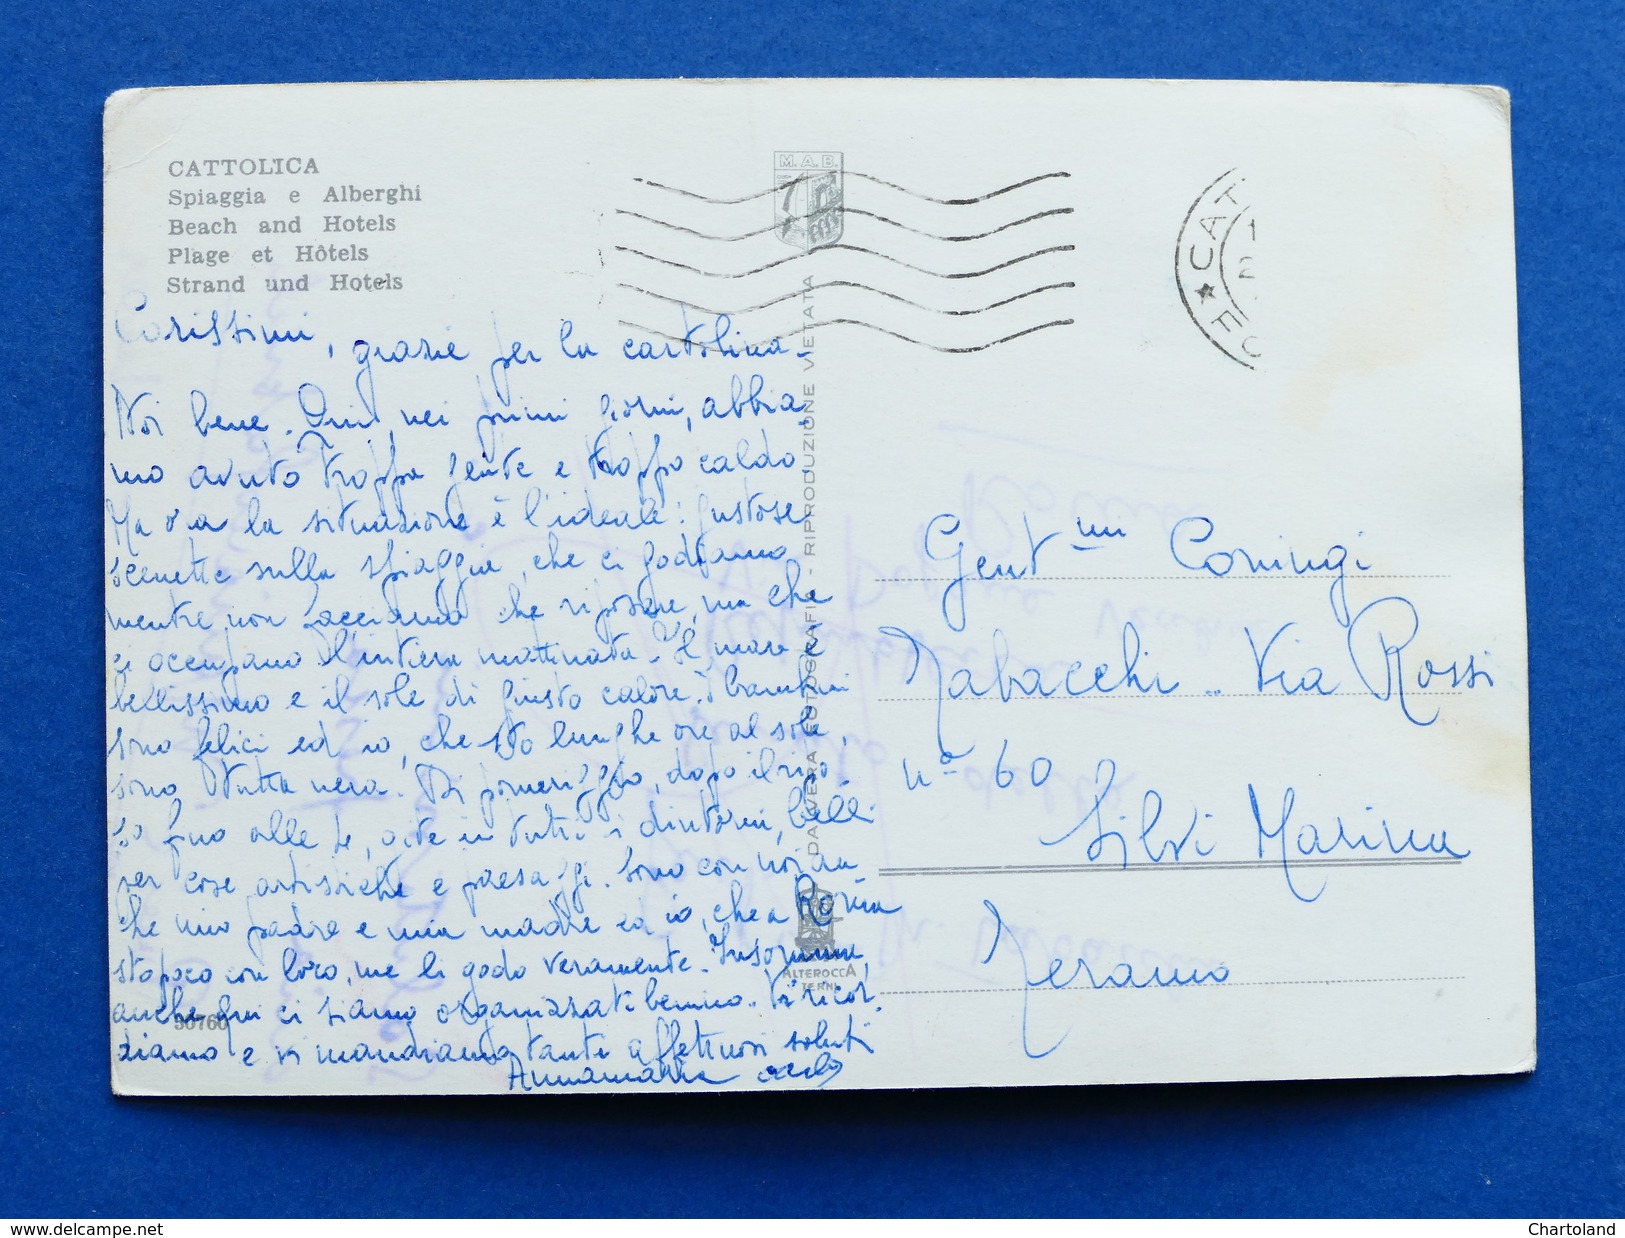 CATTOLICA
Spiaggia e Alberghi
Beach and Hotels
Plage et Hôtels
Strand und Hotels
M.A.B.
CAT
FO
Carissimi, grazie per la cartolina -
Noi bene. Qui, nei primi giorni, abbia-
mo avuto troppa gente e troppo caldo
Ma ora la situazione è l'ideale: gustose
scenette sulla spiaggia, che ci godiamo
mentre non facciamo che riposare, ma che
ci occupano l'intiera mattinata - Il mare è
bellissimo e il sole di giusto calore. I bambini
sono felici ed io, che sto lunghe ore al sole,
sono tutta nera! Di pomeriggio, dopo il ripo-
so fino alle 4, gite in tutti i dintorni, belli
per cose artistiche e paesaggi. Sono con noi an-
che mio padre e mia madre ed io, che a Roma
sto poco con loro, me li godo veramente. Insomma,
anche qui ci siamo organizzati benino. Vi ricor-
diamo e vi mandiamo tanti affettuosi saluti
Annamaria
50760
DA VERA FOTOGRAFIA - RIPRODUZIONE VIETATA
ALTEROCCA
TERNI
Gent.mi Coningi
Tabacchi - Via Rossi
n° 60
Silvi Marina
Teramo
www.delcampe.net
Chartoland